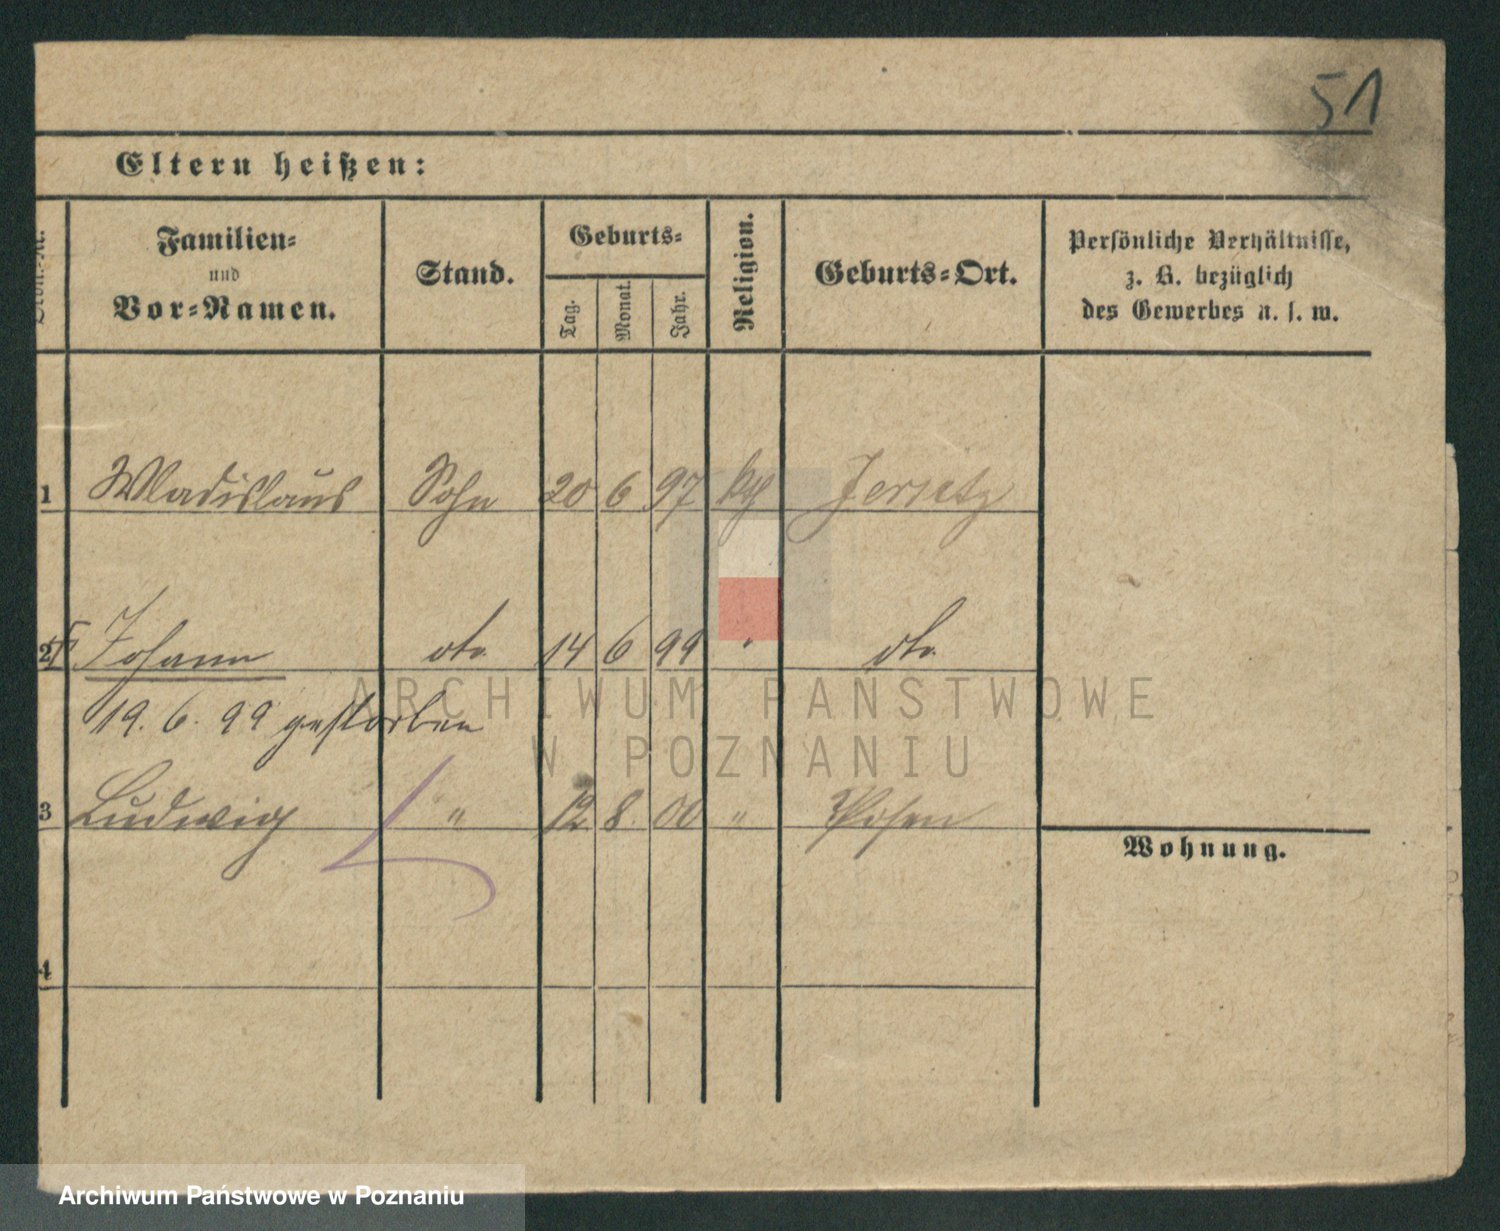 51
Eltern heißen:
Familien- und Vor-Namen. Stand. Geburts- Tag. Monat. Jahr. Religion. Geburts-Ort. Persönliche Verhältnisse, z. B. bezüglich des Gewerbes u. s. w.
1 Wladislaus Sohn 20 6 97 kth Jersitz
2 Johann dto 14 6 99 " dto
19. 6. 99 gestorben
3 Ludwig " 12 8. 00 " Posen
Wohnung.
4
ARCHIWUM PAŃSTWOWE
W POZNANIU
Archiwum Państwowe w Poznaniu